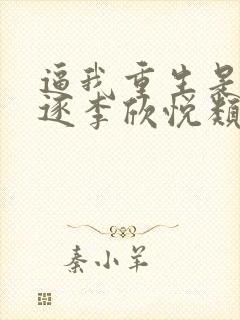 逼我重生是
逐李欣悦颓
秦小羊